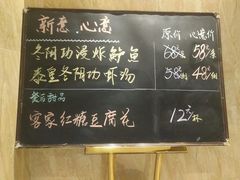 新意.心意 原价 心意价
冬阴功漫炸鲈鱼 68元/条 58元/条
泰皇冬阴功虾汤 58元/例 48元/例
甜品
客家红糖豆腐花 12元/杯